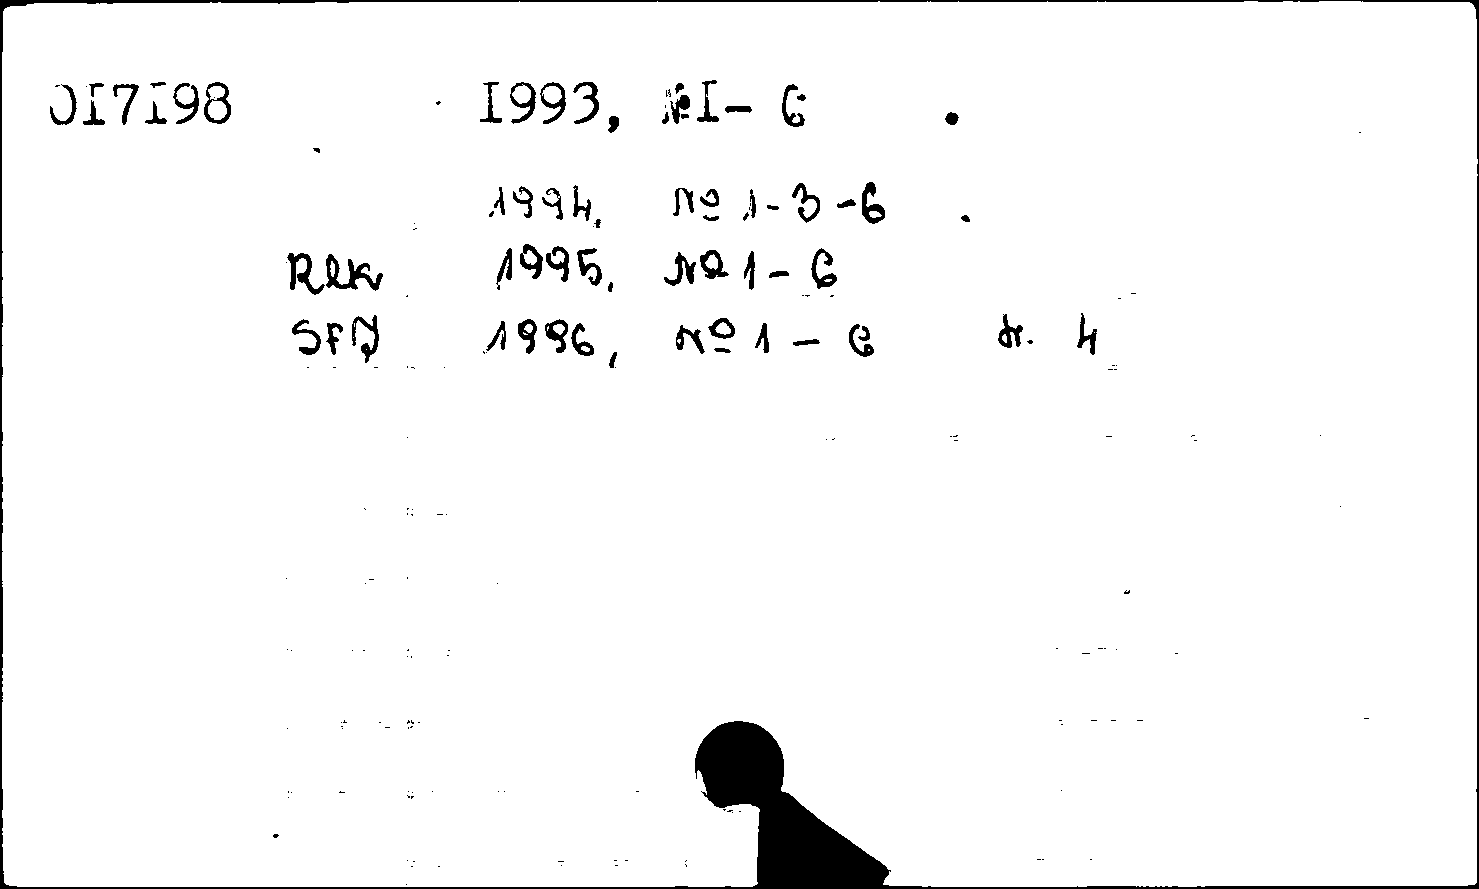 OI7I98 I993, №I- 6
1994, № 1-3-6
Rlk 1995, № 1-6
1996, № 1-6 4